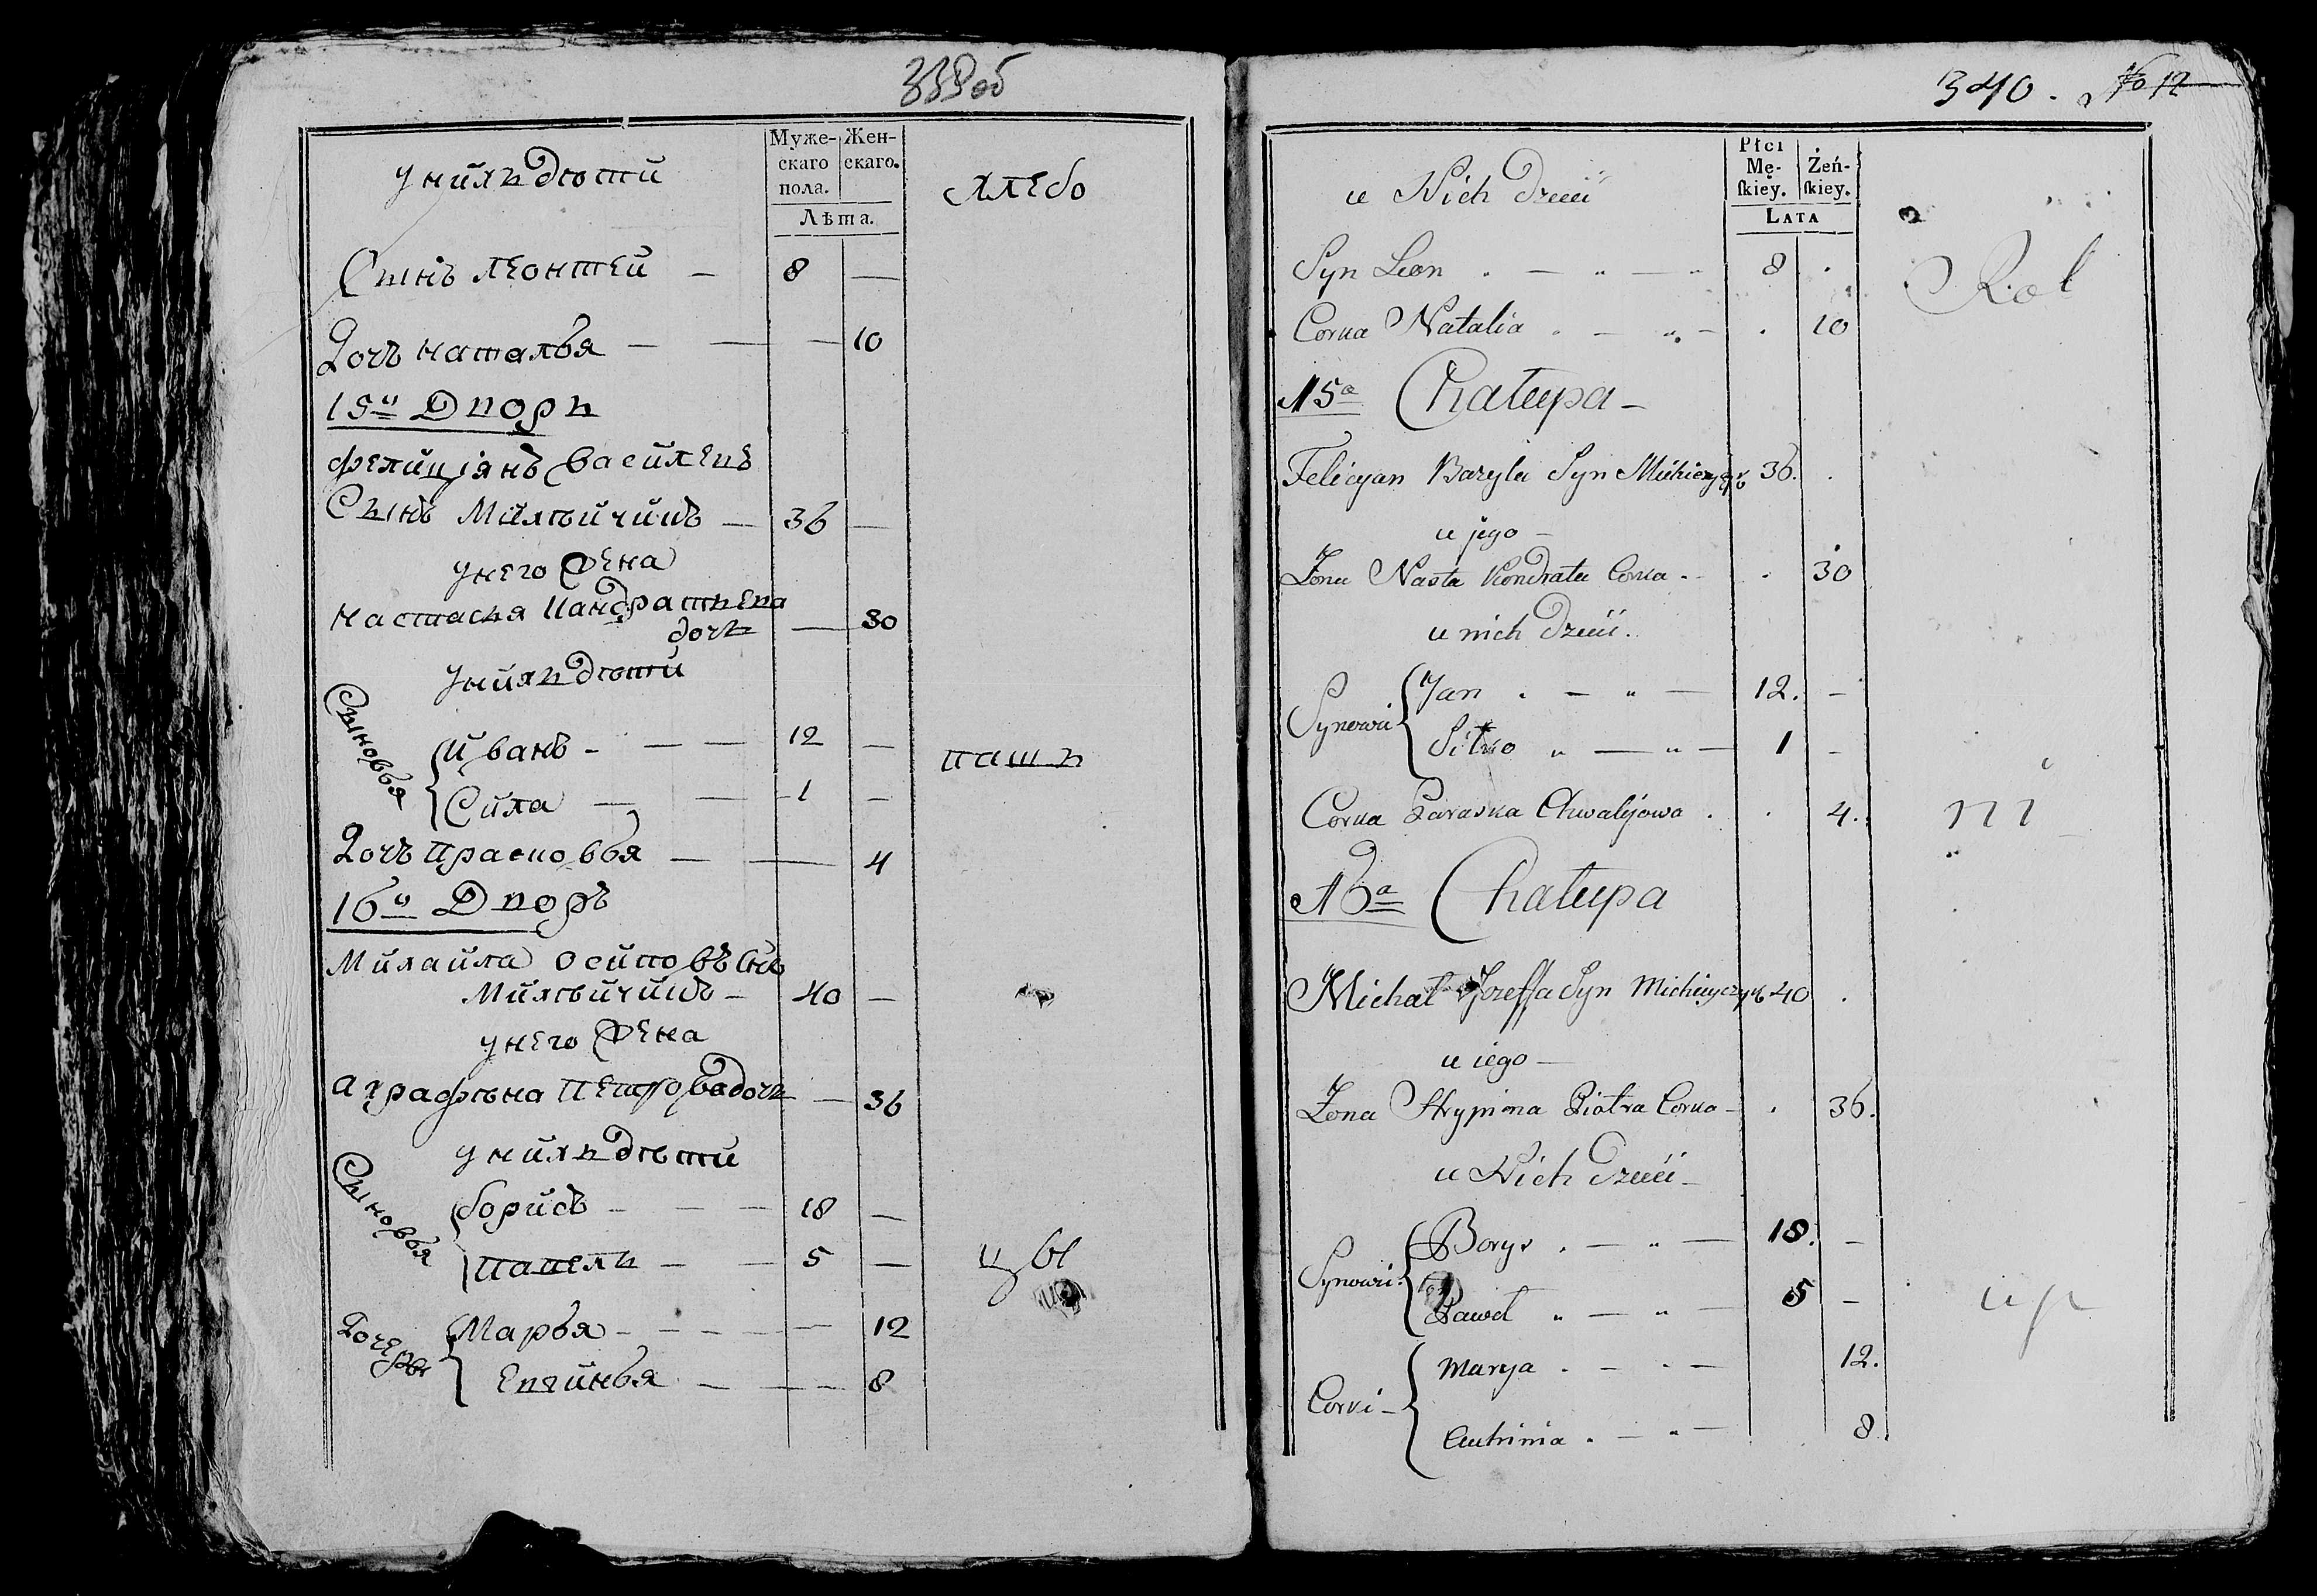 339об
у нихъ дѣти
Муже-
скаго
пола.
Жен-
скаго.
Лѣта.
хлебо
Сынъ леонтей — 8 —
Дочь наталья — — — 10
15й Дворъ
фелиціянъ василевъ
Сынъ Михѣичикъ — 36 —
у него жена
настасья кандратьева
дочь — 30
у нихъ дѣти
Сыновья
йванъ - — — 12 —
Сила — — 1 —
Дочь прасковья — — 4
16й Дворъ
Михайла осиповъ Сынъ
Михѣичикъ — 40 —
у него жена
аграфѣна петрова дочь — 36
у нихъ дѣти
Сыновья
борисъ — — — 18 —
павелъ — — 5 —
пашъ
цы
Дочеры
Марья - - - - — 12
Евгинья — — — 8
340. No 12
u Nich dzieci
Płci
Mę-
ſkiey.
Żeń-
ſkiey.
LATA
Rol
Syn Leon . — „ — „ 8 .
Corka Natalia . — „ — . 10
15a Chałupa —
Felicyan Bazyla Syn Michieyczyk 36. .
u jego —
Zona Nasta Kondrata Corka . — . 30
u nich dzieci.
Synowi
Jan . — „ — 12. —
Siłko „ — „ — 1 —
Corka Paraska Chwalejowa . . 4.
ni
16a Chałupa
Michał Jozeffa Syn Michieyczyk 40 .
u iego —
Zona Hrypina Piotra Corka — . 36.
u Nich dzieci —
Synowi
Borys . — „ — 18. —
Paweł „ — „ — 5 —
Corki —
Marya . — . — 12.
Euhinia . — „ — 8.